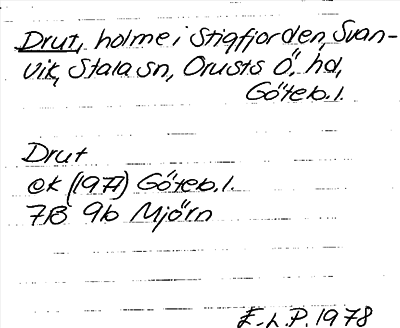 Drut, holme i Stigfjorden, Svan-
vik, Stala sn, Orusts Ö, hd,
Göteb. l.
Drut
ek (1977) Göteb. l.
7B 9b Mjörn
E.L.P. 1978